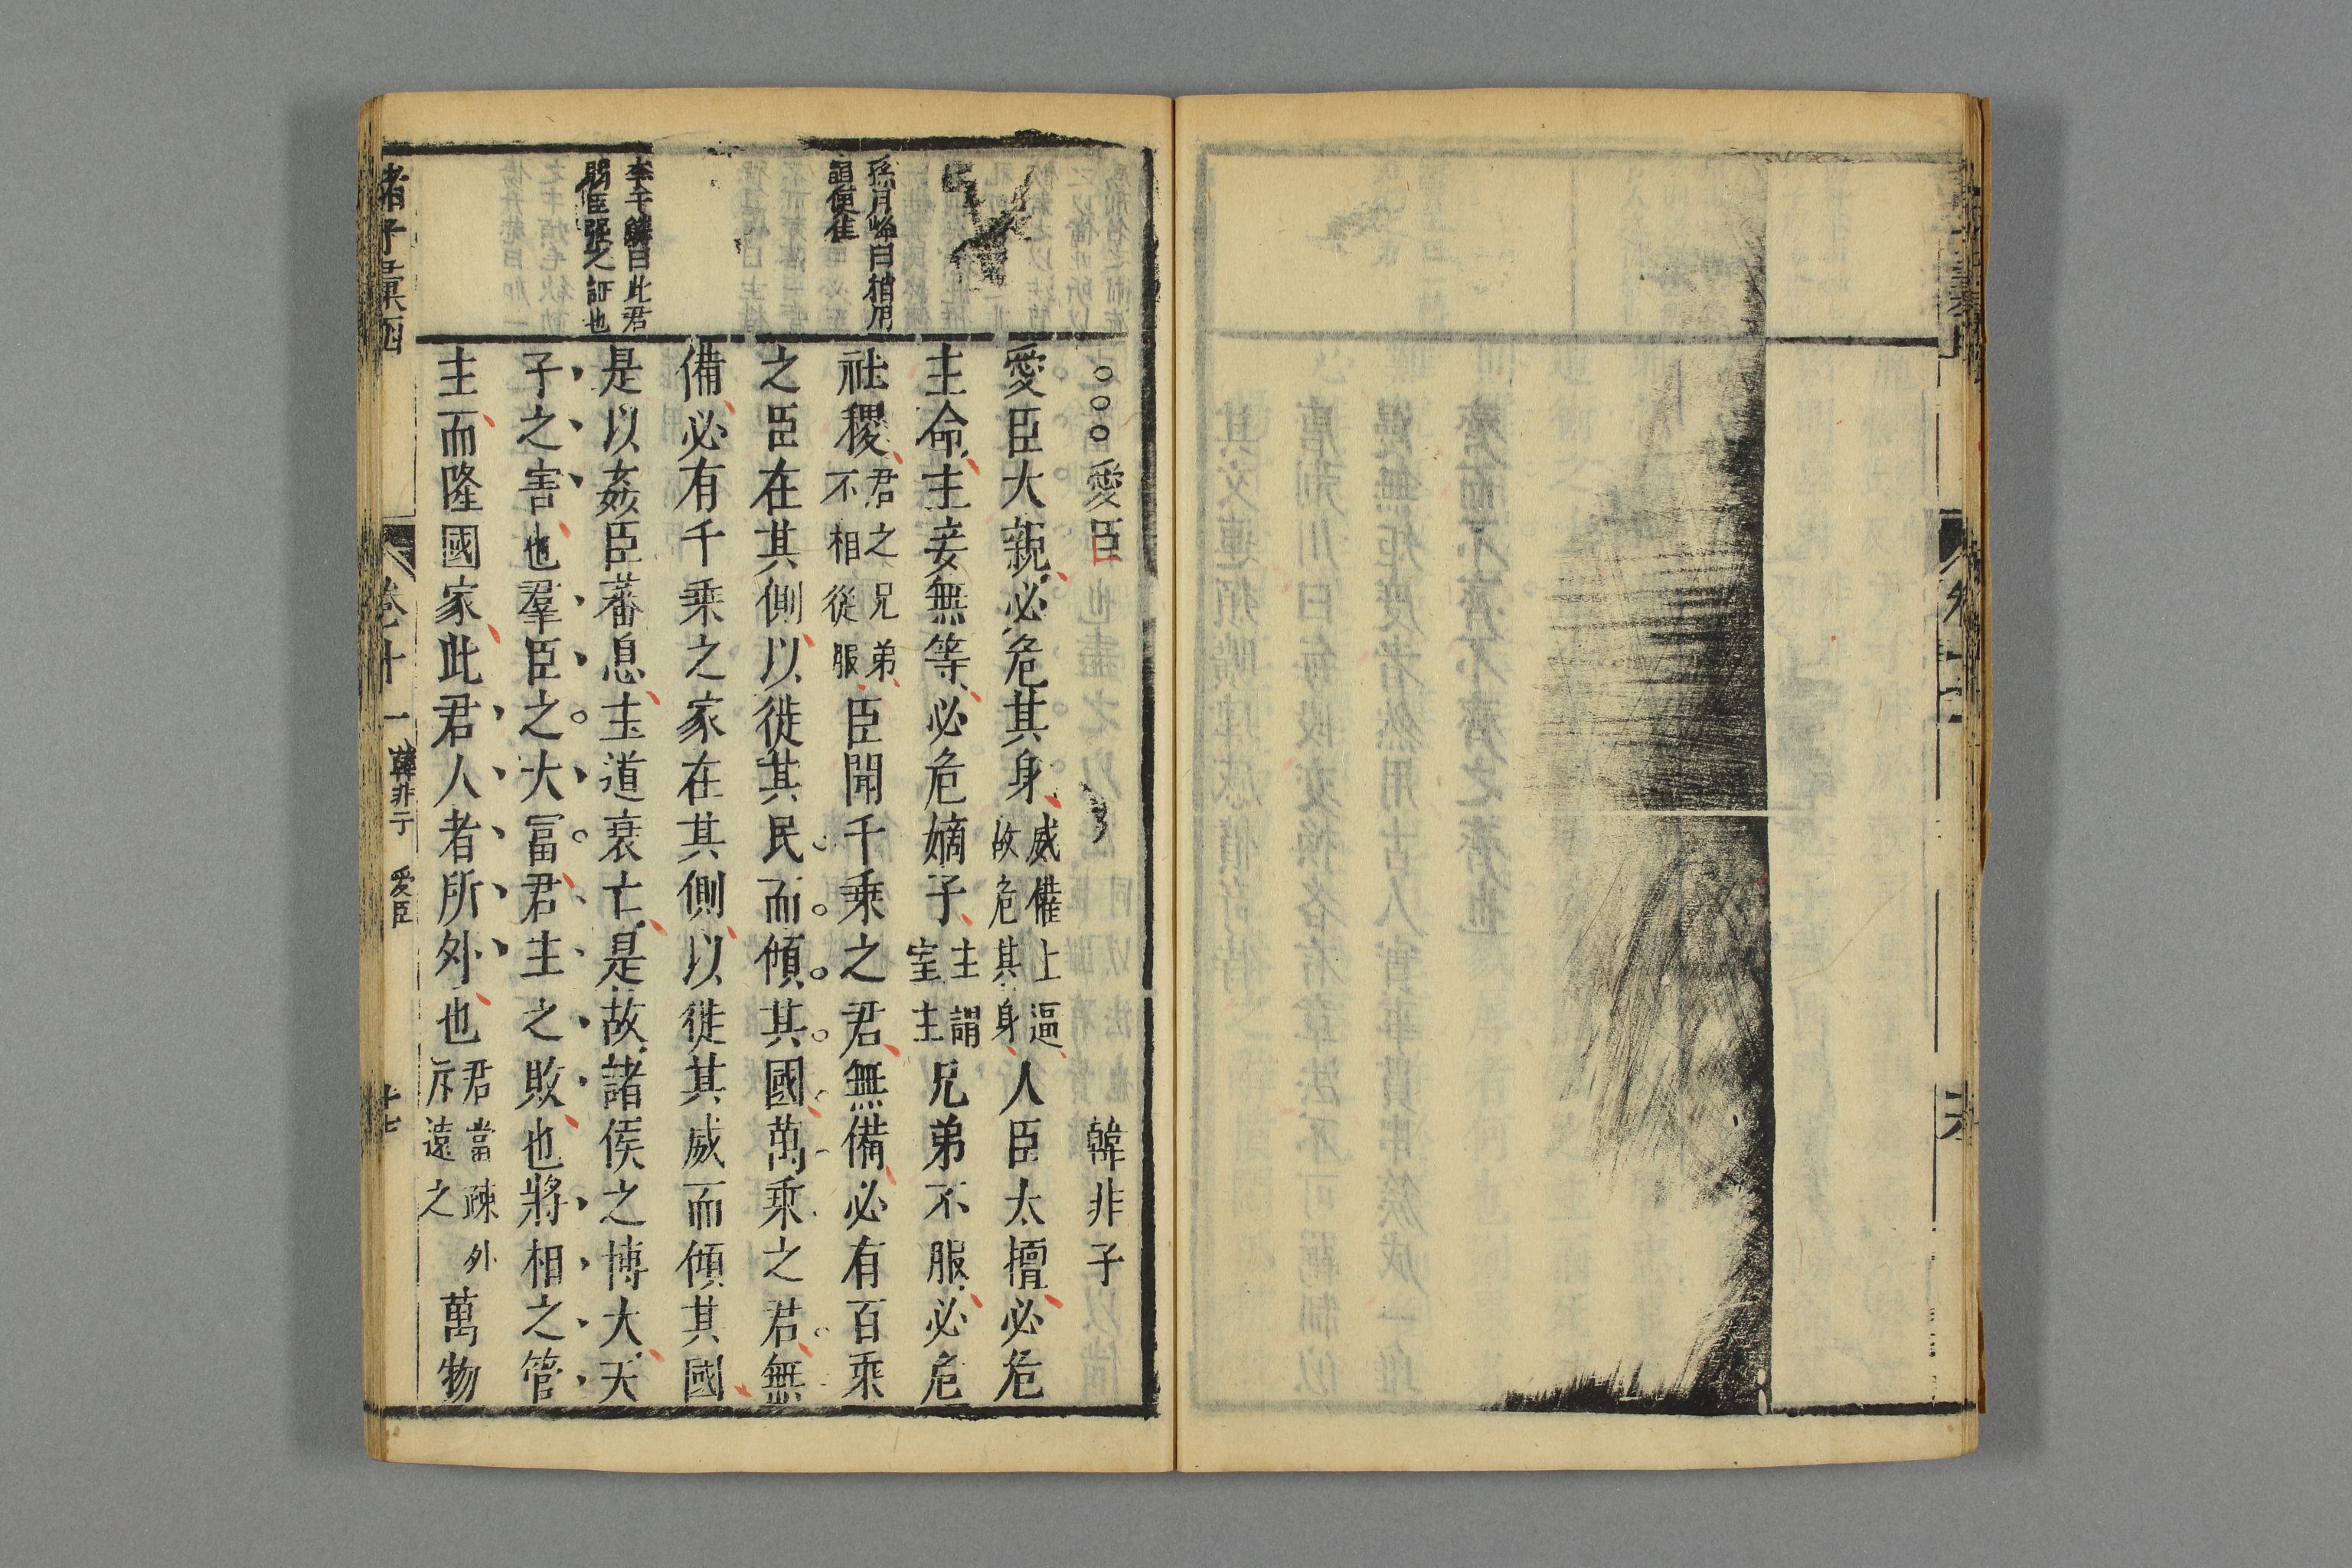 愛臣 韓非子
愛臣太親必危其身威權上逼故危其身人臣太擅必危
主命主妾無等必危嫡子主謂室主兄弟不服必危
社稷君之兄弟不相從服臣聞千乘之君無備必有百乘
之臣在其側以徙其民而傾其國萬乘之君無
備必有千乘之家在其側以徙其威而傾其國
是以姦臣蕃息主道衰亡是故諸侯之博大天
子之害也羣臣之大富君主之敗也將相之管
主而隆國家此君人者所外也君當疎外斥遠之萬物
孫月峰曰
語便佳
李于鱗曰此君
弱臣强之証也
諸子彙函
卷十一 韓非子 愛臣 十七